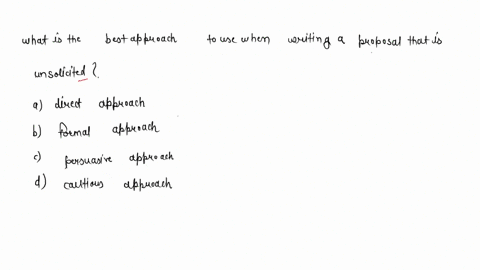 what is the best approach to use when writing a proposal that is
unsolicited?
a) direct approach
b) formal approach
c) persuasive approach
d) cautious approach